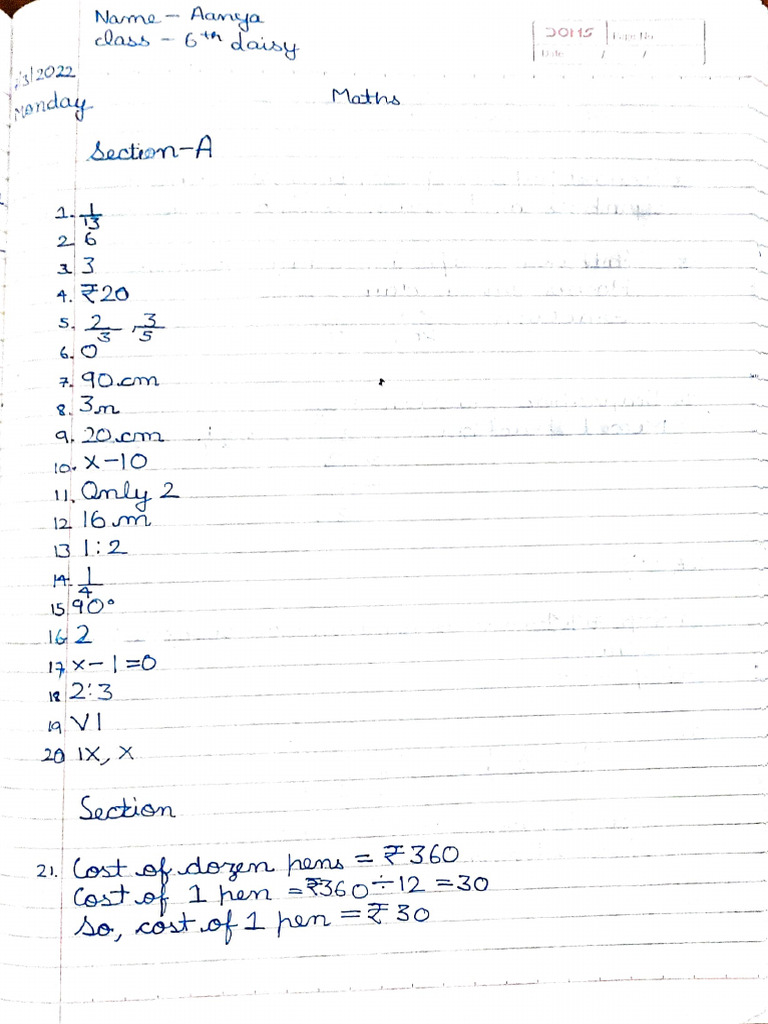 Name - Aanya
class - 6th daisy
DOMS Page No.
Date / /
/3/2022
Monday
Maths
Section-A
1. 1/13
2 6
3 3
4. ₹20
5. 2/3, 3/5
6. 0
7. 90 cm
8. 3n
9. 20 cm
10. x-10
11. Only 2
12 16 m
13 1:2
14. 1/4
15. 90°
16 2
17 x-1=0
18 2:3
19 VI
20 IX, X
Section
21. Cost of dozen pens = ₹360
Cost of 1 pen = ₹360÷12 = 30
So, cost of 1 pen = ₹30